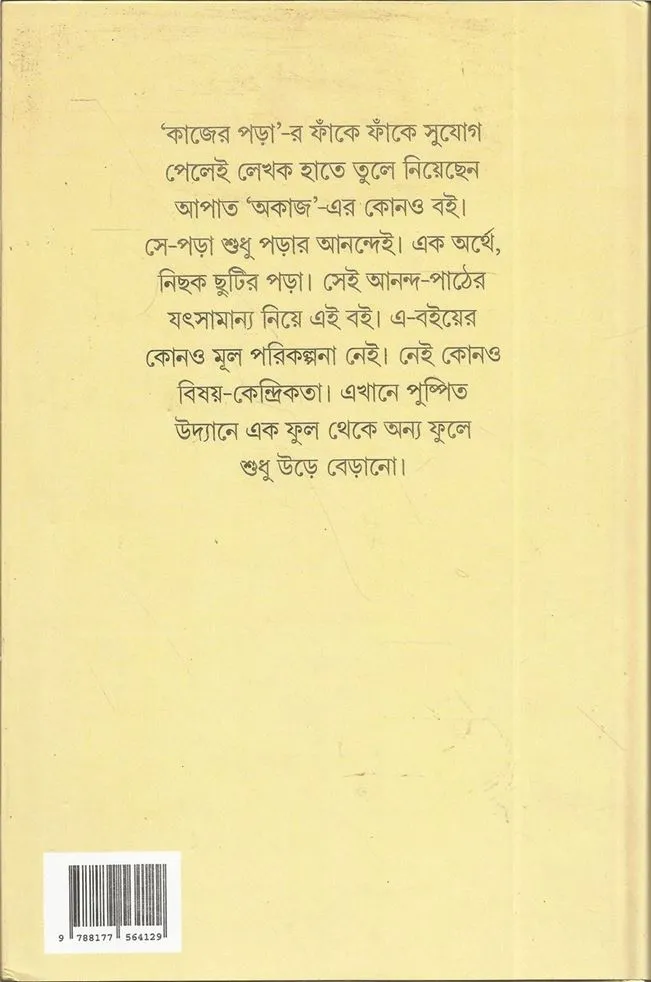 ‘কাজের পড়া’-র ফাঁকে ফাঁকে সুযোগ
পেলেই লেখক হাতে তুলে নিয়েছেন
আপাত ‘অকাজ’-এর কোনও বই।
সে-পড়া শুধু পড়ার আনন্দেই। এক অর্থে,
নিছক ছুটির পড়া। সেই আনন্দ-পাঠের
যৎসামান্য নিয়ে এই বই। এ-বইয়ের
কোনও মূল পরিকল্পনা নেই। নেই কোনও
বিষয়-কেন্দ্রিকতা। এখানে পুষ্পিত
উদ্যানে এক ফুল থেকে অন্য ফুলে
শুধু উড়ে বেড়ানো।
9 788177 564129